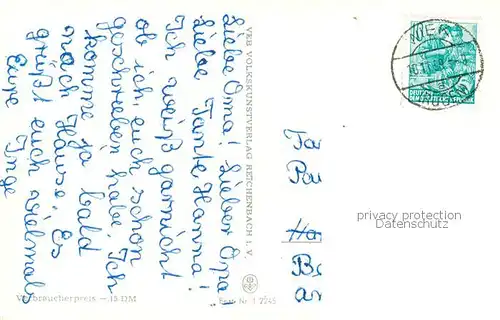 Liebe Oma! Lieber Opa!
Liebe Tante Hanna!
Ich weiß garnicht
ob ich euch schon
geschrieben habe. Ich
komme ja bald
nach Hause. Es
grüßt euch vielmals
Eure Inge
VEB VOLKSKUNSTVERLAG REICHENBACH i. V.
Verbraucherpreis —.15 DM
1 7245
privacy protection
Datenschutz